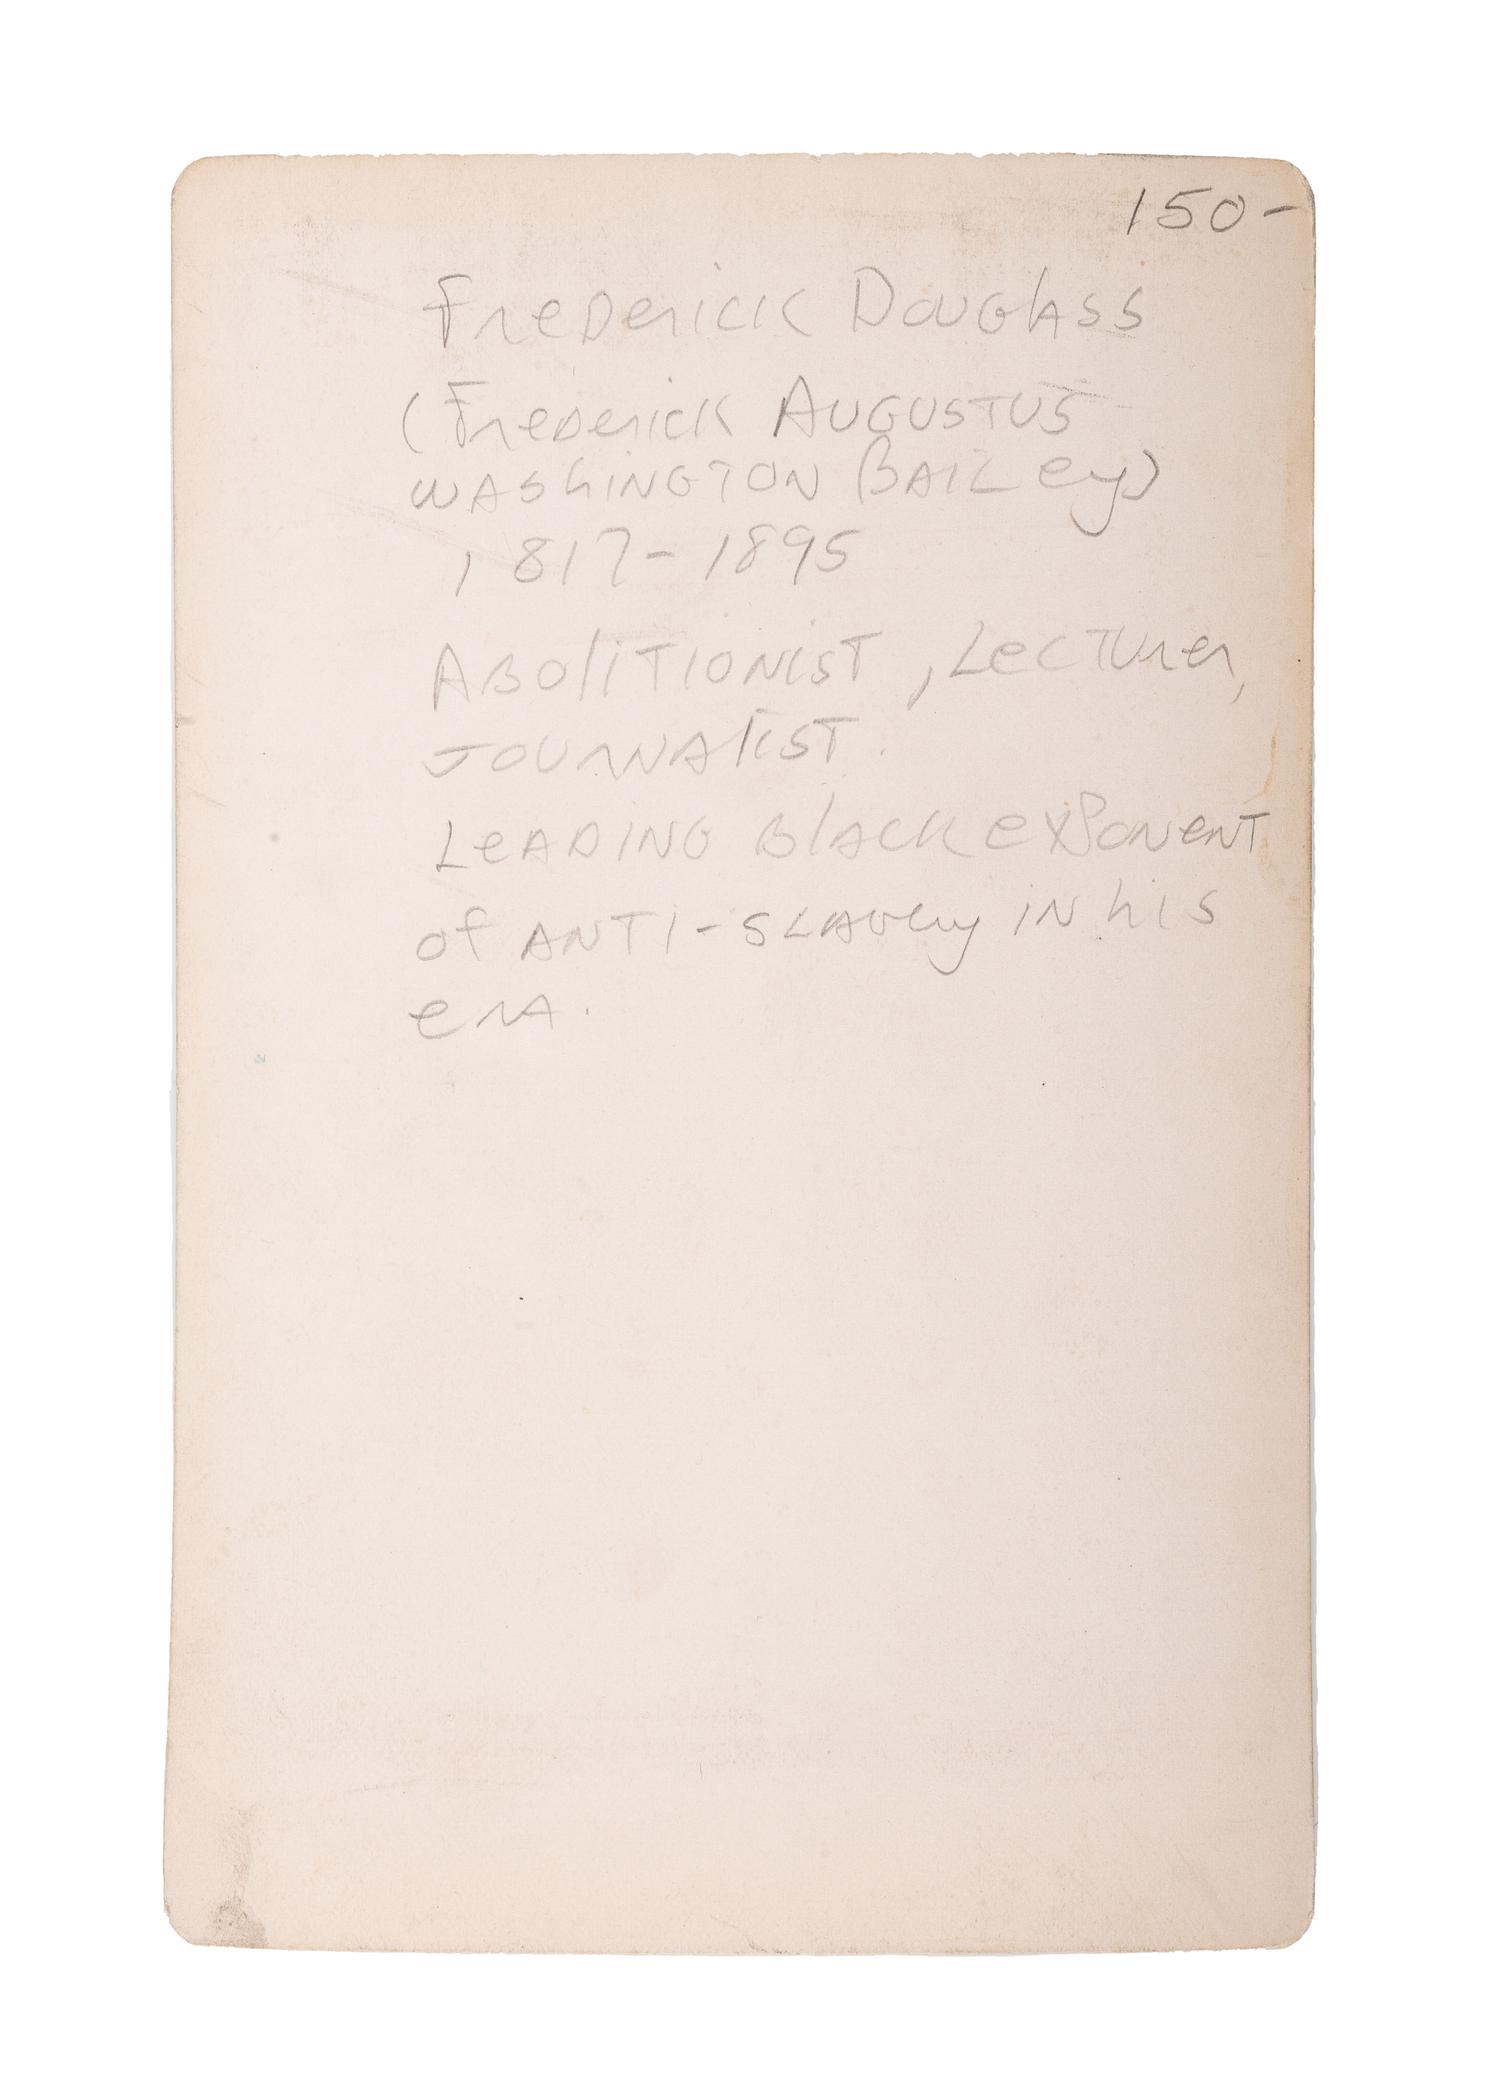 150-
Frederick Douglass
(Frederick Augustus
Washington Bailey)
1817-1895
Abolitionist, Lecturer,
Journalist.
Leading Black exponent
of anti-slavery in his
era.